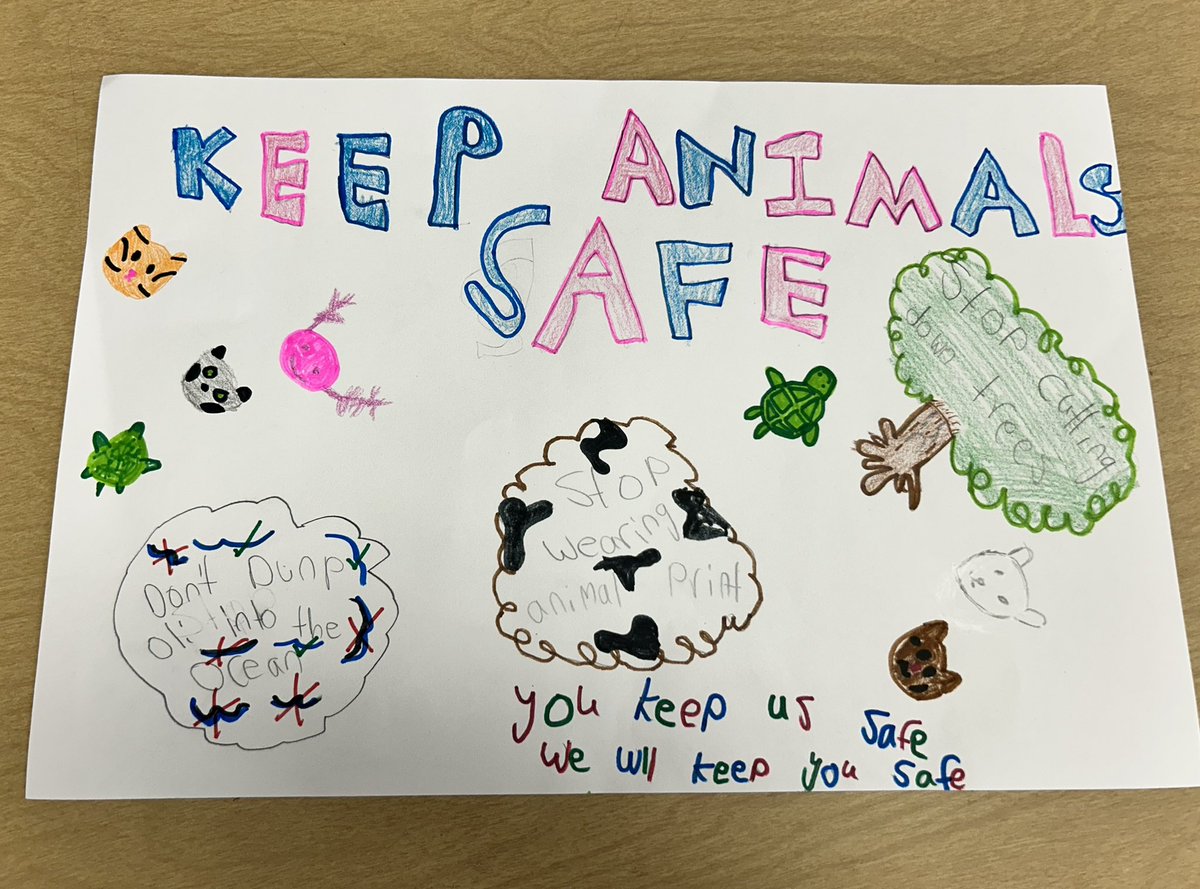 KEEP ANIMALS
SAFE
Stop Cutting
down trees
Stop
wearing
animal Print
Don't Dunp
oli into the
Ocean
you keep us safe
We will keep you safe